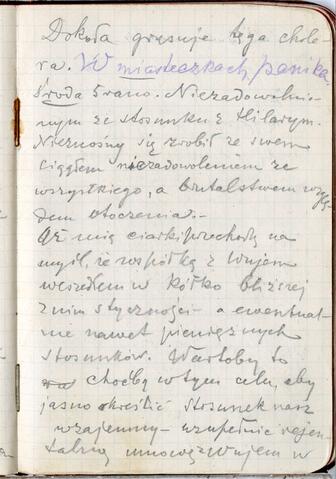 Dokoła grasuje tęga chole
ra. W miasteczkach panika
Środa 5 rano. Niezadowolnio-
nym ze stosunku z Hilarym.
Nieznośny się zrobił ze swem
ciągłem niezadowoleniem ze
wszystkiego, a brutalstwem wzglę
dem otoczenia.-
Aż mię ciarki przechodzą na
myśl, że wspólką z Wujem
wszedłem w kółko bliższej
z nim styczności - a ewentual-
nie nawet pieniężnych
stosunków. Wartoby to
choćby w tym celu, aby
jasno określić stosunek nasz
wzajemny - uzupełnić rejen-
talną umowę z Wujem w